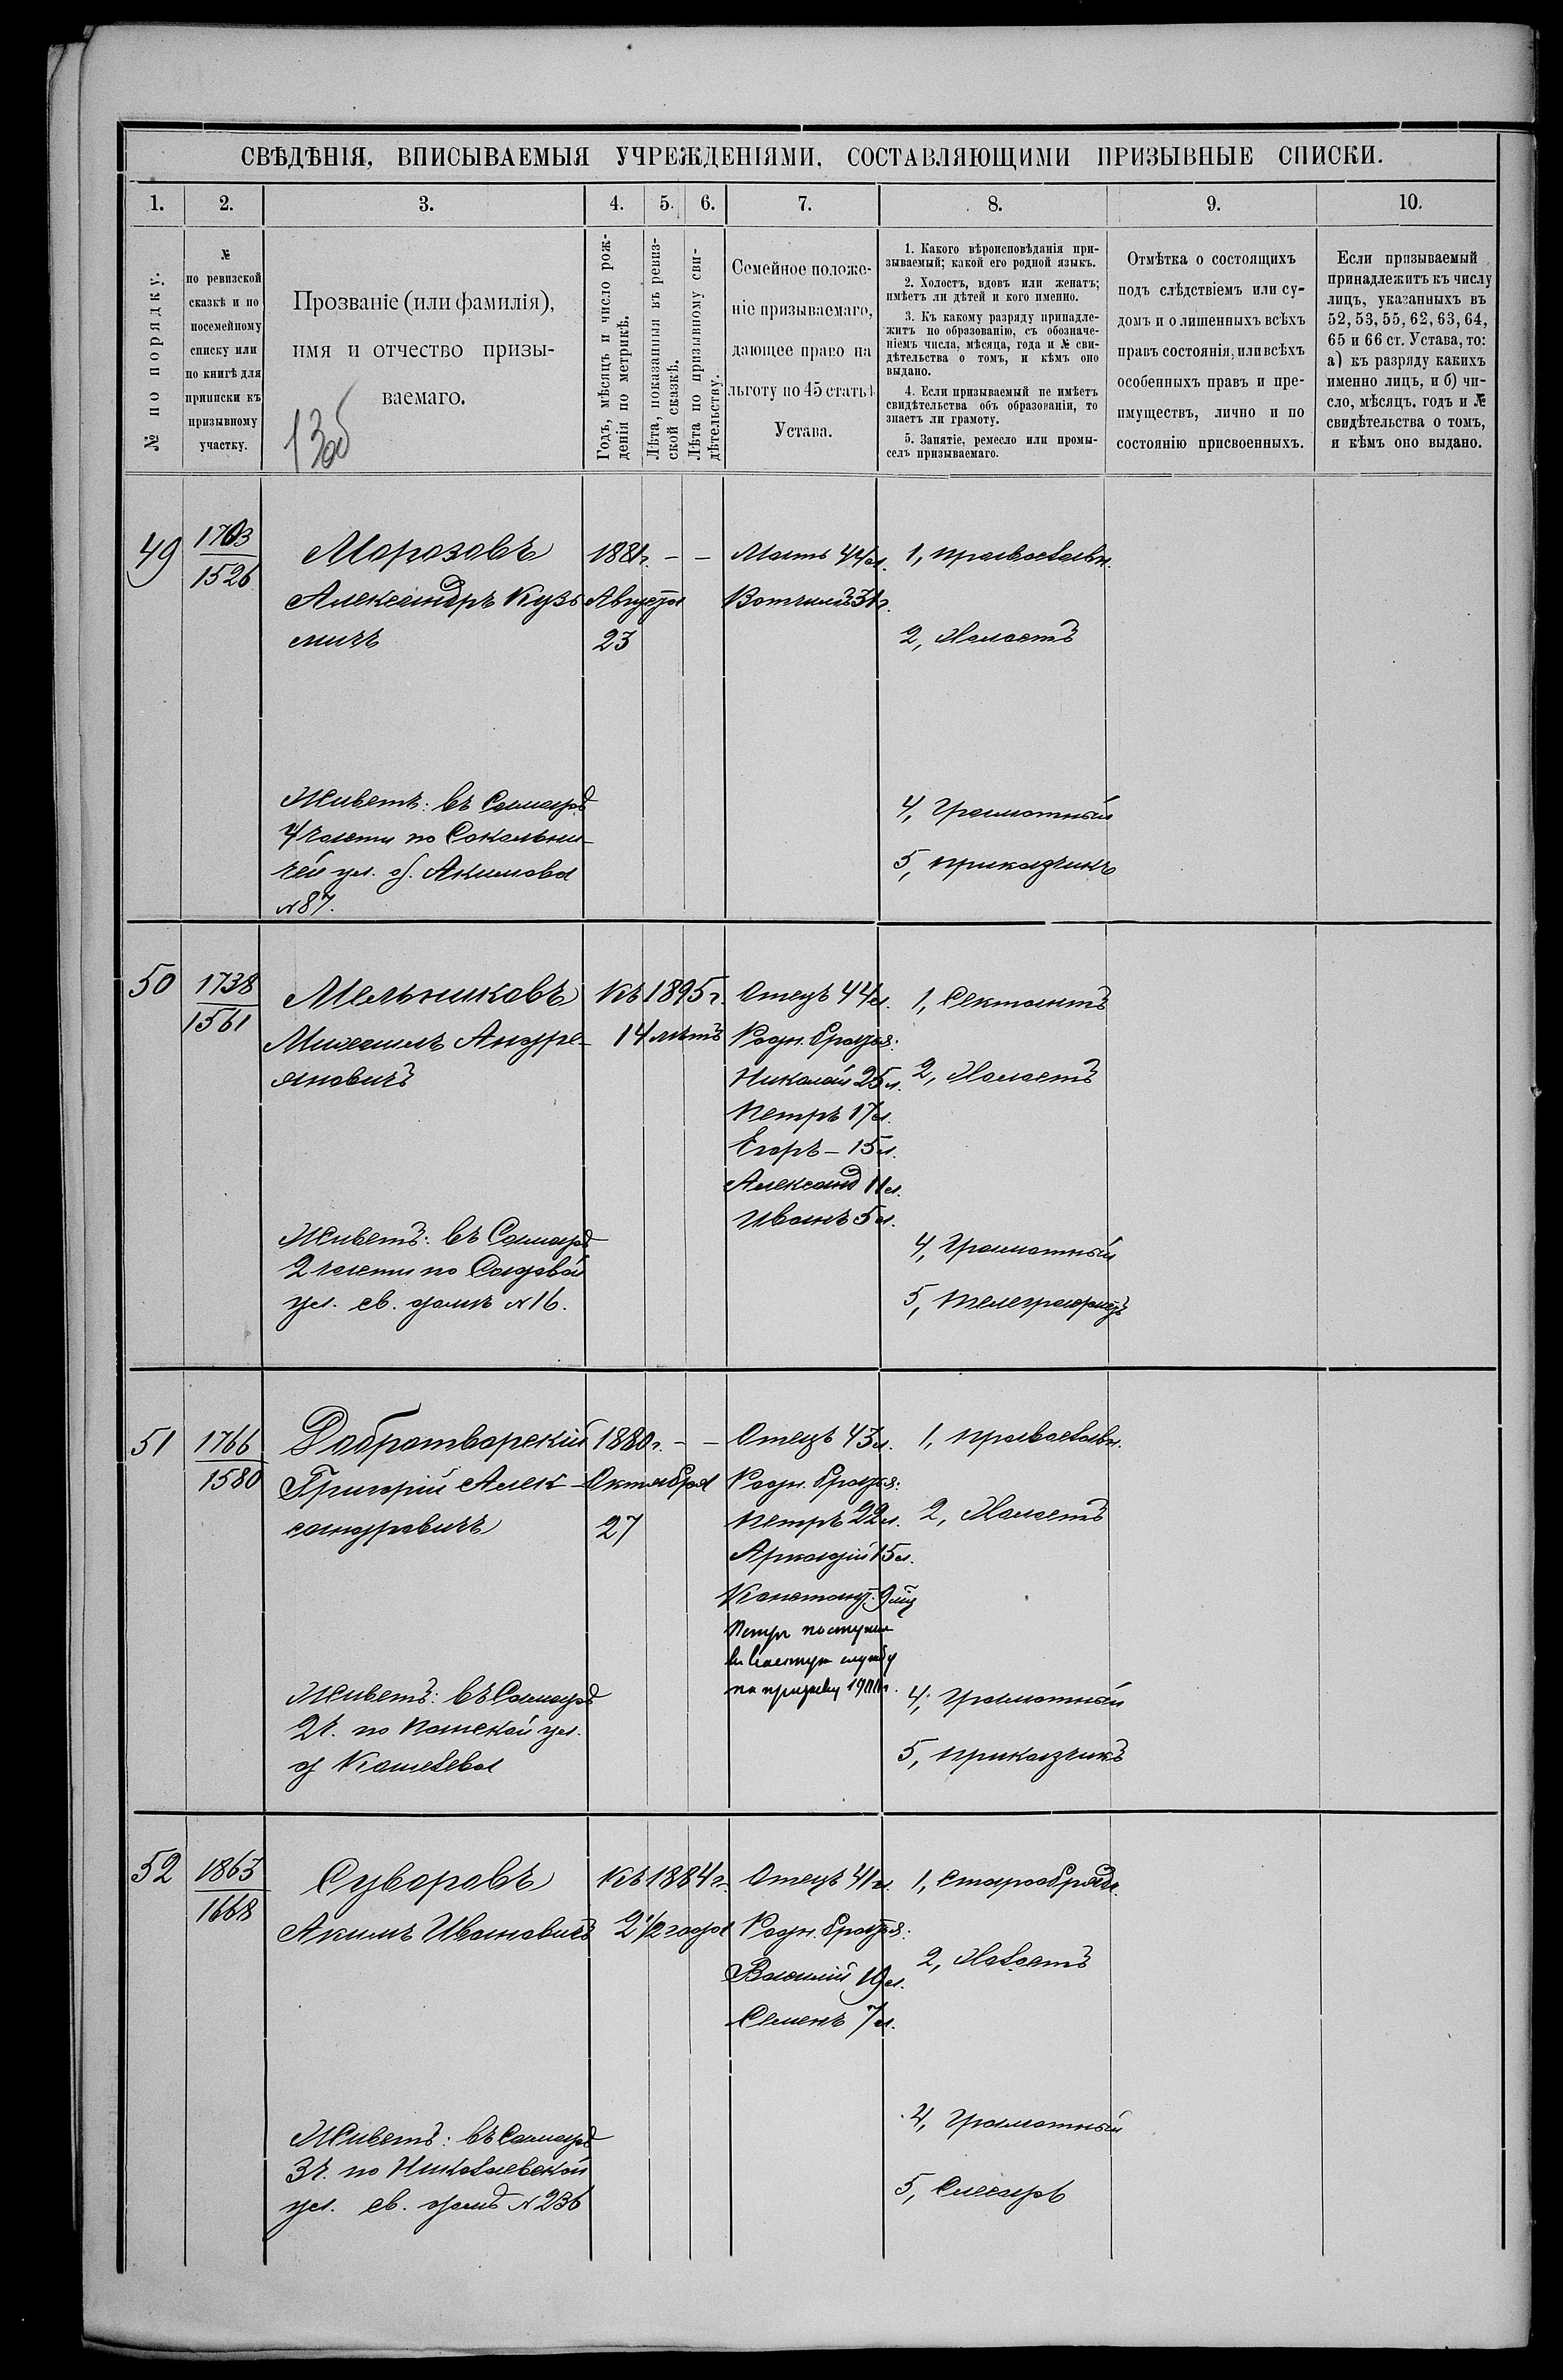 СВѢДѢНІЯ, ВПИСЫВАЕМЫЯ УЧРЕЖДЕНІЯМИ, СОСТАВЛЯЮЩИМИ ПРИЗЫВНЫЕ СПИСКИ.
1. 2. 3. 4. 5. 6. 7. 8. 9. 10.
№ по порядку.
№
по ревизской
сказкѣ и по
посемейному
списку или
по книгѣ для
приписки къ
призывному
участку.
Прозваніе (или фамилія),
имя и отчество призы-
ваемаго.
Годъ, мѣсяцъ и число рож-
денія по метрикѣ.
Лѣта, показанныя въ ревиз-
ской сказкѣ.
Лѣта по призывному сви-
дѣтельству.
Семейное положе-
ніе призываемаго,
дающее право на
льготу по 45 статьѣ
Устава.
1. Какого вѣроисповѣданія при-
зываемый; какой его родной языкъ.
2. Холостъ, вдовъ или женатъ;
имѣетъ ли дѣтей и кого именно.
3. Къ какому разряду принадле-
житъ по образованію, съ обозначе-
ніемъ числа, мѣсяца, года и № сви-
дѣтельства о томъ, и кѣмъ оно
выдано.
4. Если призываемый не имѣетъ
свидѣтельства объ образованіи, то
знаетъ ли грамоту.
5. Занятіе, ремесло или промы-
селъ призываемаго.
Отмѣтка о состоящихъ
подъ слѣдствіемъ или су-
домъ и о лишенныхъ всѣхъ
правъ состоянія, или всѣхъ
особенныхъ правъ и пре-
имуществъ, лично и по
состоянію присвоенныхъ.
Если призываемый
принадлежитъ къ числу
лицъ, указанныхъ въ
52, 53, 55, 62, 63, 64,
65 и 66 ст. Устава, то:
а) къ разряду какихъ
именно лицъ, и б) чи-
сло, мѣсяцъ, годъ и №
свидѣтельства о томъ,
и кѣмъ оно выдано.
49
1703
1526
Морозовъ
Александръ Кузь
мичъ
Живетъ: въ Самарѣ
4 части по Сокольни-
чей ул. д. Акимова
№ 87.
1881г. – –
Августа
23
Мать 44л.
Вотчимъ 31г.
1, православн.
2, Холостъ
4, Грамотный
5, приказчикъ
50
1738
1561
Мельниковъ
Михаилъ Андре-
яновичъ
Живетъ: въ Самарѣ
2 части по Садовой
ул. св. домъ № 16.
Къ 1895 г.
14 лѣтъ
Отецъ 44л.
Родн. братья:
Николай 25 л.
Петръ 17л.
Егоръ – 15л.
Александ 11л.
Иванъ 5л.
1, Сектантъ
2, Холостъ
4, Грамотный
5, телеграфистъ
51
1766
1580
Добротворскій
Григорій Алек-
сандровичъ
Живетъ: въ Самарѣ
2ч. по Панской ул.
д Кошелева
1880г. – –
Октября
27
Отецъ 43л.
Родн. братья:
Петръ 22л.
Аркадій 15л.
Константт. 9
Петръ поступил
въ военную службу
по призыву
1, православн.
2, Холостъ
4, Грамотный
5, приказчикъ
52
1863
1668
Суворовъ
Акимъ Ивановичъ
Живетъ: въ Самарѣ
3ч. по Николаевской
ул. св. домѣ № 236
Къ 1884 г.
2 1/2 года
Отецъ 41л.
Родн. братья:
Василій 19л.
Семенъ 7л.
1, Старообрядц.
2, Холостъ
4, Грамотный
5, Слесарь